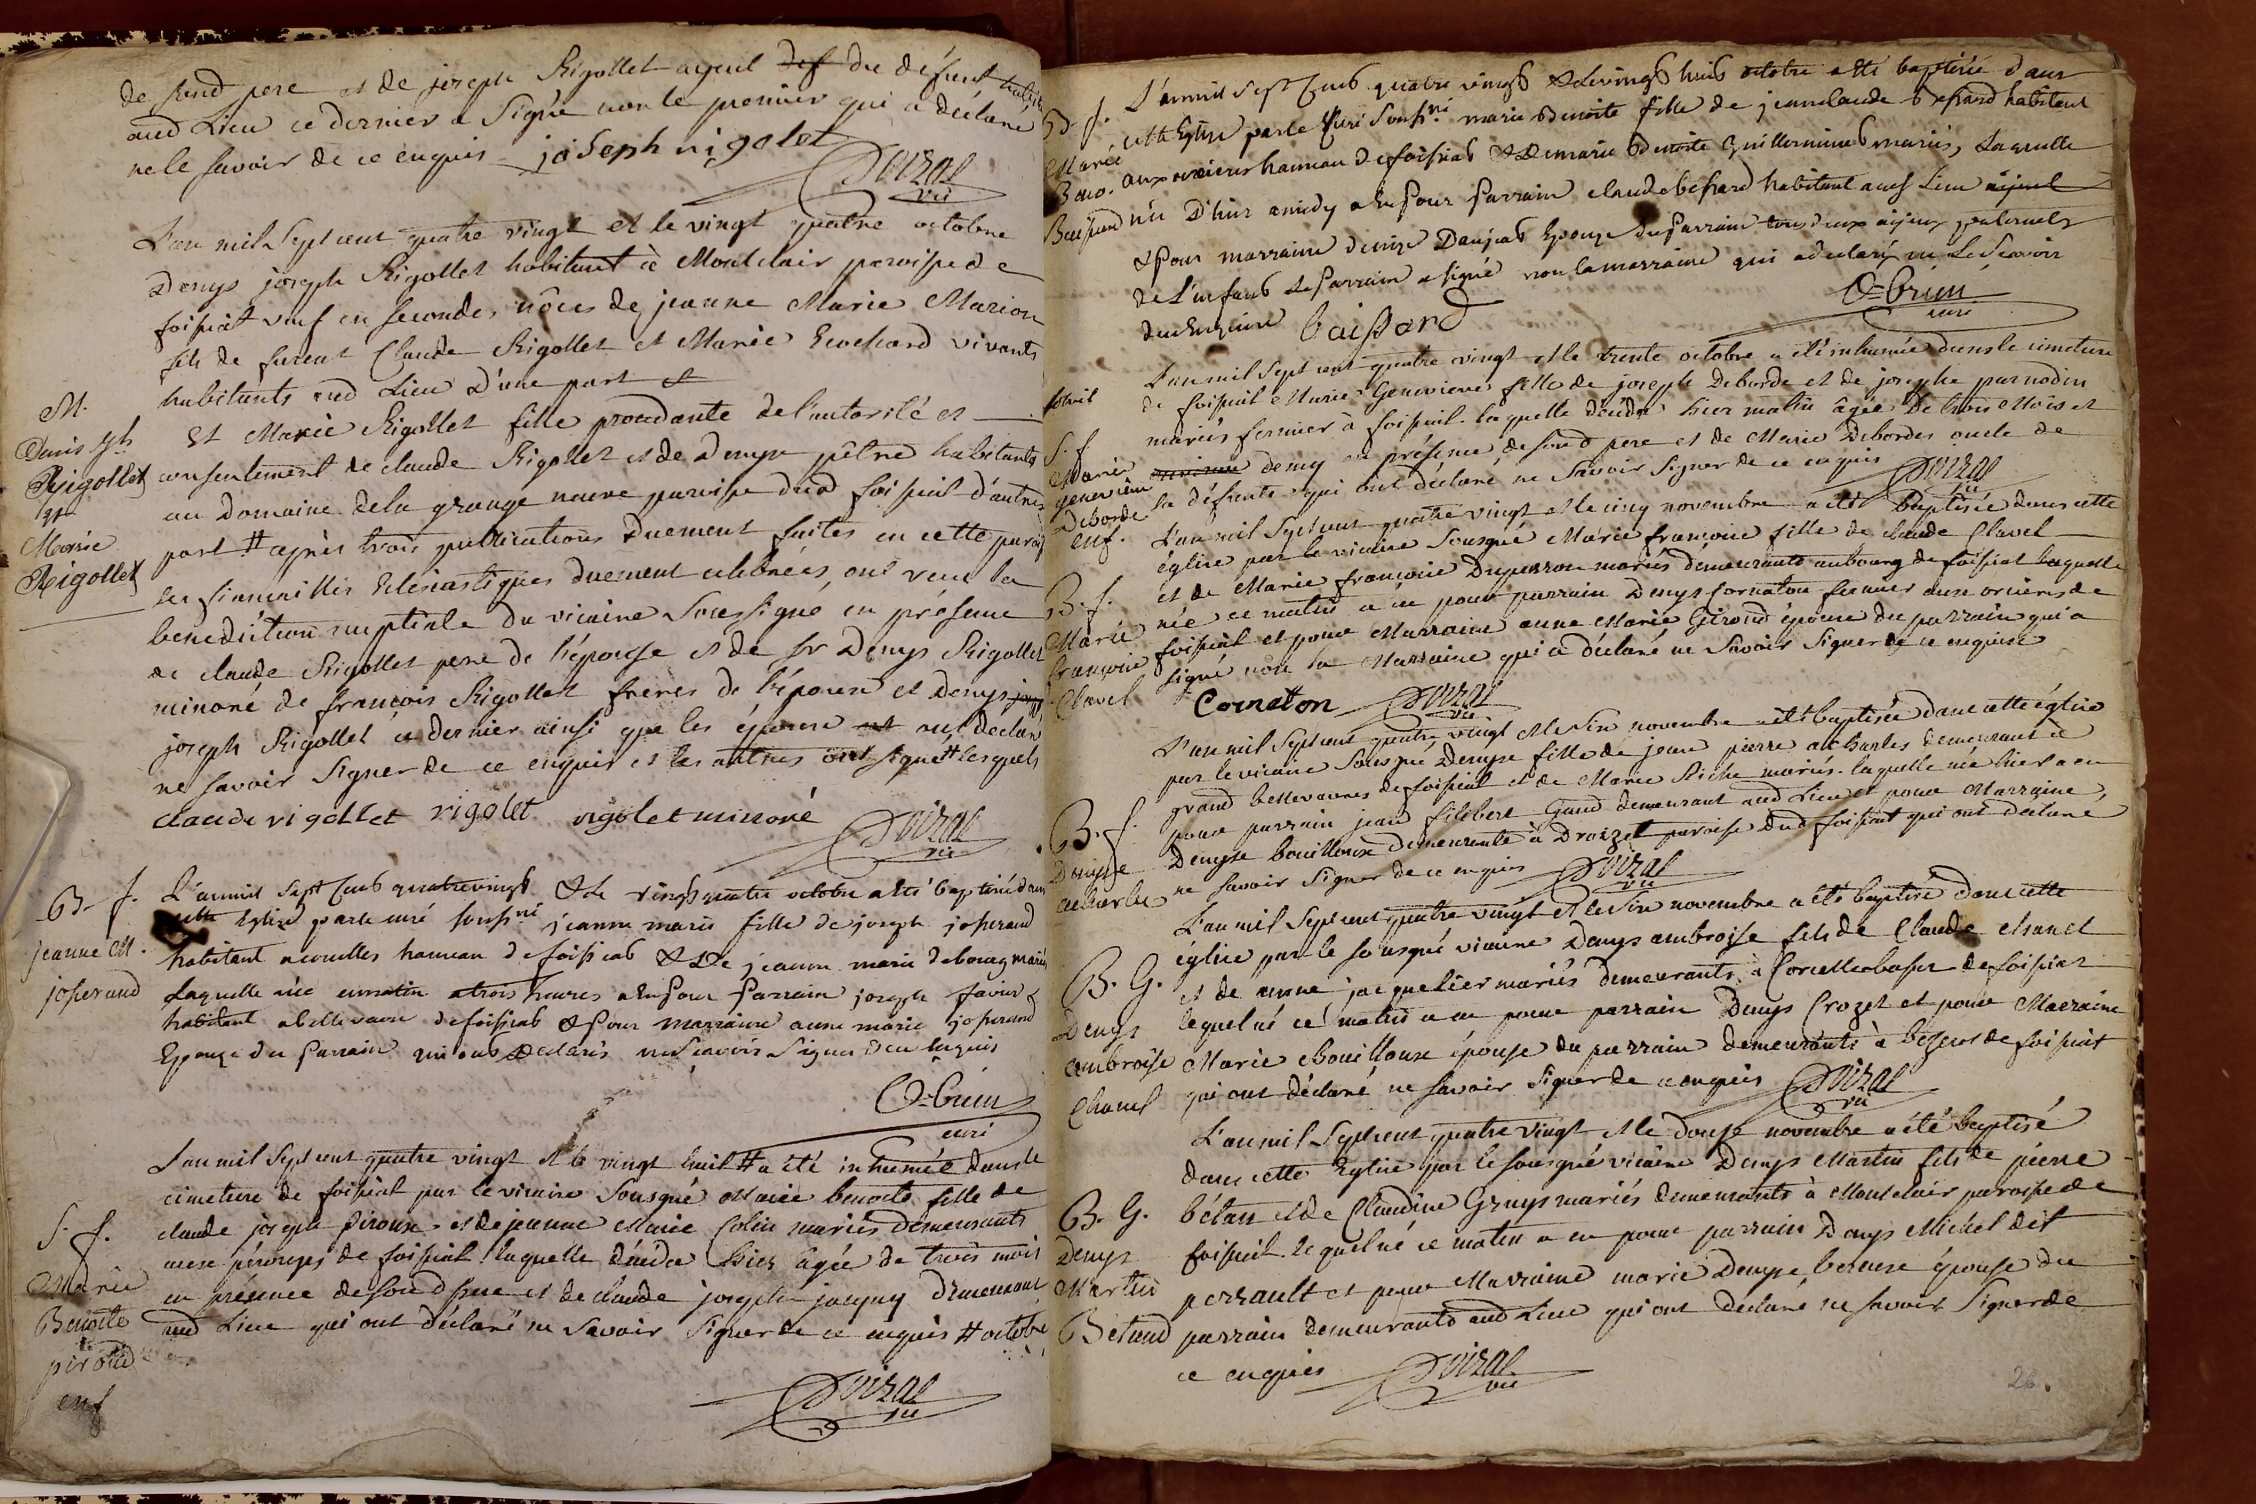 de fond pere et de joseph Rigollet ayeul def du défunt habit
aud Lieu ce dernier a Signé non le premier qui a déclaré
ne le savoir de ce enquis joseph rigolet
Doizal
vic
L'an mil Sept cent quatre vingt et le vingt quatre octobre
Denys joseph Rigollet habitant à Montclair paroisse de
foissiat veuf en secondes nôces de jeanne Marie Marion
fils de furent Claude Rigollet et Marie Ecochard vivants
habitants aud Lieu d'une part et
M.
Denis jh
Rigollet
et
Marie
Rigollet
Et Marie Rigollet fille procedante de l'autorité et
consentement de claude Rigollet et de Denyse pêtre habitants
au Domaine de la grange neuve paroisse dud foissiat d'autre
part # après trois publications duement faites en cette paroiss
les fiancailles Eclésiastiques duement celebrées, ont recu la
benediction nuptiale du vicaire Soussigné en présence
de claude Rigollet pere de l'épouse et de sr Denys Rigollet
minoré de francois Rigollet freres de l'épouse et Denys
joseph Rigollet ce dernier ainsi que les épouse ont déclaré
ne savoir Signer de ce enquis et les autres ont signé # lesquels
claude rigollet rigolet rigolet minoré
Doizal
vic
B. f.
jeanne M.
josserand
L'anmil sept Cens quatrevingt & le vingt quatre octobre a été baptisé dans
cette Eglise par le curé souss.né jeanne marie fille de joseph josserand
habitant a corcelles hameau de foissiat & De jeanne marie debourg mariés
Laquelle née cematin a trois heures a Eu pour Parrain joseph favier
habitant a bellevavre de foissiat & pour marraine anne marie josserand
Epouze du Parrain qui ont Declarés ne Scavoir Signer deu Enquis
O-brun
curé
S. f.
Marie
Benoite
piroud
enf
L'an mil Sept cent quatre vingt et le vingt huit # a été inhumée dans le
cimetiere de foissiat par le vicaire Sousigné Marie benoite fille de
claude joseph piroux et de jeanne Marie Colin mariés demeurants
aux pérouzes de foissiat laquelle décédée hier âgée de trois mois
en présence de son d pere et de claude joseph demeurant
aud Lieu qui ont déclaré ne savoir signer de ce enquis # octobre
Doizal
vic
B. f.
Marie
Beno.
Baissard
L'anmil Sept Cens quatre vingt & le vingt huit octobre a été baptisée dans
cette Eglise par le Curé Souss.né marie benoite fille de jeanclaude bessard habitant
aux orcieres hameau de foissiat & De marie benoite Guillerminet mariés, Laquelle
née D'hier amidy a Eu pour parrain claude bessard habitant aud Lieu
& pour marraine denize Danjat Epouze du Parrain tous deux aijeux paternels
de L'enfant Le Parrain a signé non la marraine qui a declaré ne Le Scavoir
deu Enquise baissard
O-brun
curé
S. f.
Marie
genevieve
Deborde
enf.
L'an mil Sept cent quatre vingt et le trente octobre a été inhumée dans le cimetiere
de foissiat Marie Genevieve fille de joseph Deborde et de josephe parnodin
mariés fermier à foissiat. laquelle décédée hier matin âgée de trois Mois et
demy en présence de son d pere et de Marie Debordes oncle de
la défunte qui ont déclaré ne Savoir Signer de ce enquis
Doizal
vic
B. f.
Marie
francoise
Clavel
L'an mil Sept cent quatre vingt et le cinq novembre a été baptisée dans cette
église par le vicaire Sousigné Marie francoise fille de claude Clavel
et de Marie francoise Duperron mariés demeurants au bourg de foissiat laquelle
née ce matin a eu pour parrain Denys Cornaton fermier aux orcieres de
foissiat et pour Marraine anne Marie Giroud épouse du parrain qui a
signé non la Marraine qui a déclaré ne Savoir Signer de ce enquise
Cornatton
Doizal
vic
B. f.
Denyse
acharles
L'an mil Sept cent quatre vingt et le Six novembre a été baptisée dans cette église
par le vicaire Sousigné Denyse fille de jean pierre acharles demeurant à
grand bellevavres de foissiat et de Marie Riche mariés. laquelle née hier a eu
pour parrain jean filibert Gaud demeurant aud Lieu et pour Marraine
Denyse bouilloux demeurante à Droizet paroisse dud foissiat qui ont déclaré
ne savoir signer de ce enquis
Doizal
vic
B. G.
Denys
ambroise
Chanel
L'an mil Sept cent quatre vingt et le Six novembre a été baptisé dans cette
église par le sousigné vicaire Denys ambroise fils de Claude Chanel
et de anne jacquelier mariés demeurants à Corcelle basse de foissiat
lequel né ce matin a eu pour parrain Denys Crozet et pour Marraine
Marie Bouilloux épouse du parrain demeurants à bezent de foissiat
qui ont déclaré ne savoir signer de ce enquis
Doizal
vic
B. G.
Denys
Martin
Betand
L'an mil Sept cent quatre vingt et le douse novembre a été baptisé
dans cette Eglise par le sousigné vicaire Denys Martin fils de pierre
bétan et de Claudine Gruys mariés demeurants à Montclair paroisse de
foissiat. lequel né ce matin a eu pour parrain Denys Michel dit
perrault et pour Marraine marie Denyse beroux épouse du
parrain demeurants aud Lieu qui ont déclaré ne savoir Signer de
ce enquis
Doizal
vic
26.